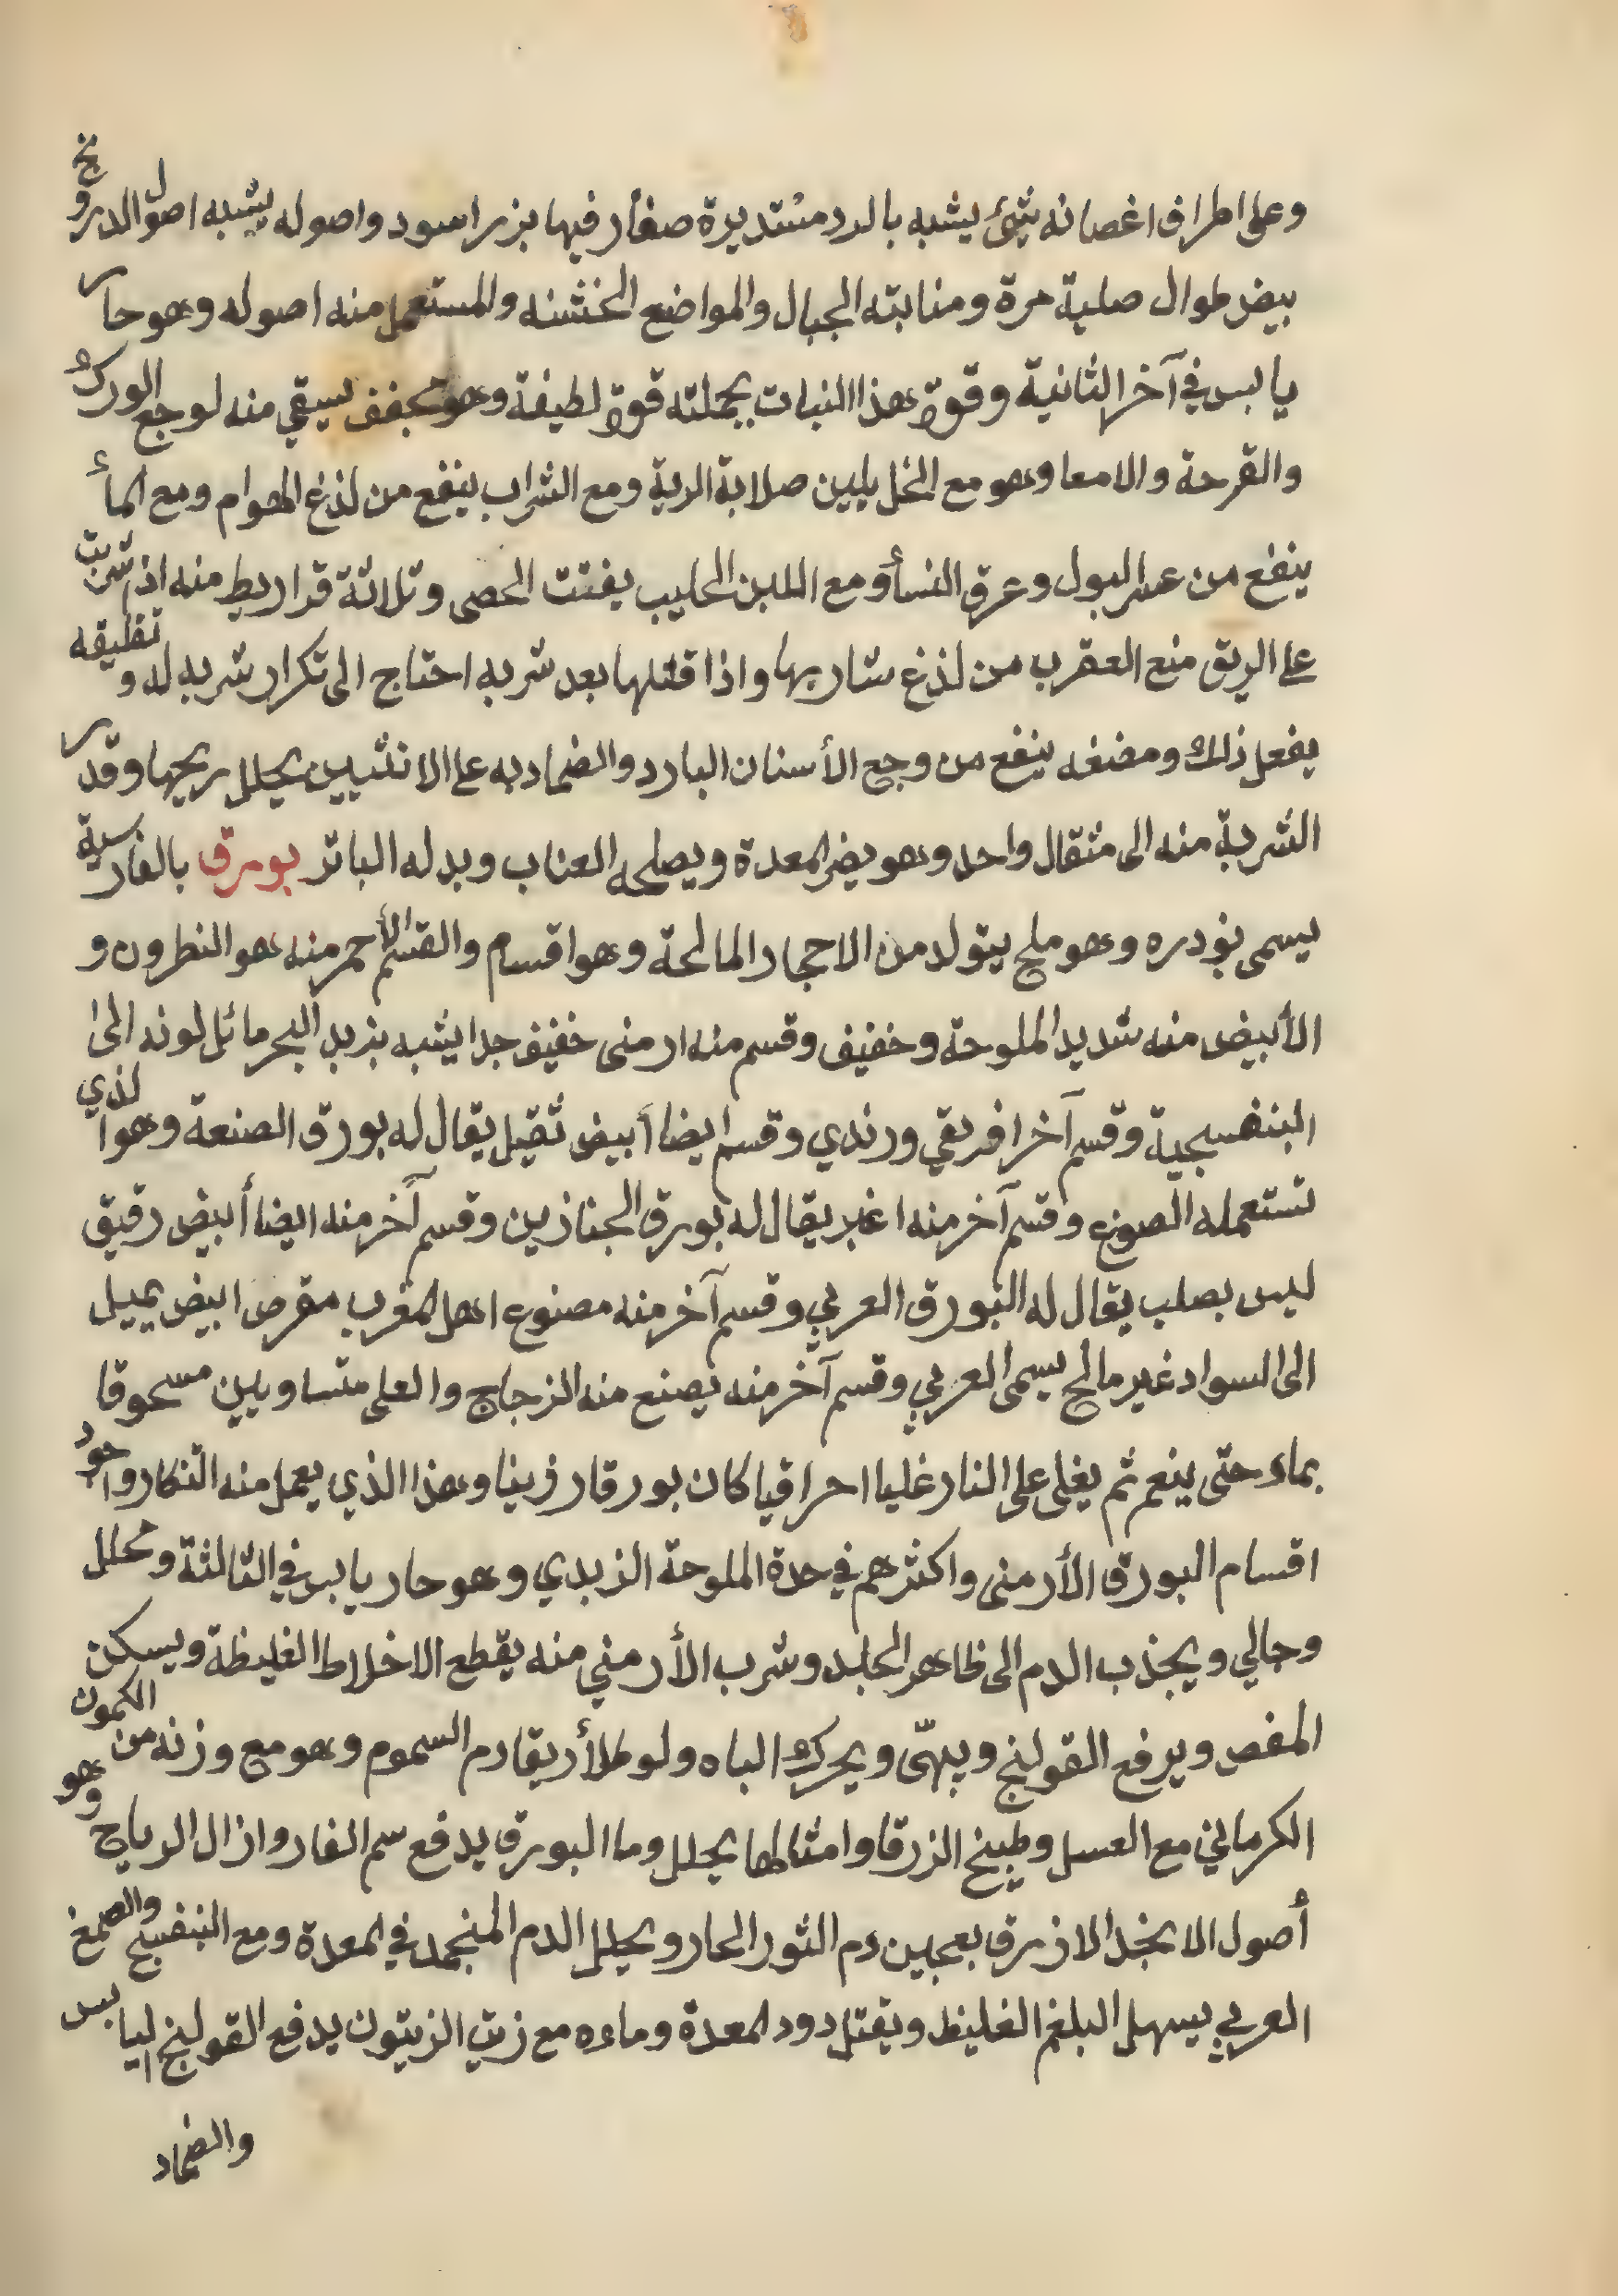 وعلى اطراف اغصانه شئ يشبه بالدرد مستديرة صغار فيها بزر اسود واصوله يشبه اصول الدرونج
بيض طوال صلبة مرة ومنابته الجبال والمواضع الخشنه والمستعمل منه اصوله وهو حار
يابس في آخر الثانية وقوة هذا النبات بجملته قوة لطيفة وهو مجفف يسقي منه لوجع الورك
والقرحة والامعا وهو مع الخل يلين صلابة الرية ومع الشراب ينفع من لذغ الهوام ومع المأء
ينفع من عسر البول وعرق النسأ ومع اللبن الحليب يفتت الحصى وثلاثة قراريط منه اذا شربت
على الريق منع العقرب من لذغ شاربها واذا قتلها بعد شربه احتاج الى تكرار شربه له وتعليقه
يفعل ذلك ومضغه ينفع من وجع الأسنان البارد والضماد به على الانثيين يحلل ريحها وقدر
الشربة منه الى مثقال واحد وهو يضر المعدة ويصلحه العناب وبدله الباتر بورق بالفارسية
يسمى بودره وهو ملح يتولد من الاحجار المالحة وهو اقسام والقسم الأحمر منه هو النطرون و
الأبيض منه شديد الملوحة وخفيف وقسم منه ارمنى خفيف جدا يشبه بزبد البحر مائل لونه الى
البنفسجية وقسم آخر افريقي ورندي وقسم ايضا أبيض ثقيل يقال له بورق الصنعة وهو الذي
تستعمله الصوغ وقسم آخر منه اغبر يقال له بورق الجنازين وقسم آخر منه ايضا أبيض رقيق
ليس بصلب يقال له البورق العربي وقسم آخر منه مصنوع اهل المغرب مقرص ابيض يميل
الى السواد غير مالح يسمى العربي وقسم آخر منه يصنع منه الزجاج والعلى متساويين مسحوقا
بماء حتى ينعم ثم يغلى على النار غليا احراقيا كان بورقا رزينا وهذا الذي يعمل منه التنكار واجود
اقسام البورق الأرمنى واكثرهم في حدة الملوحة الزبدي وهو حار يابس في الثالثة ومحلل
وجالي ويجذب الدم الى ظاهر الجلد وشرب الأرمني منه يقطع الاخلاط الغليظة ويسكن
المغص ويرفع القولنج ويهىّ ويحرك الباه ولو طلأ ريقادم السموم وهو مع وزنه من الكمون
الكرماني مع العسل وطبيخ الزرقا وامثالها يحلل وما البورق يدفع سم الفار وازال الرياح وهو
أصول الانجذ الازرق بعجين دم الثور الحار ويحلل الدم المنجمد في المعدة ومع البنفسج والصمغ
العربي يسهل البلغم الغليظ ويقتل دود المعدة وماءه مع زيت الزيتون يدفع القولنج اليابس
والضماد